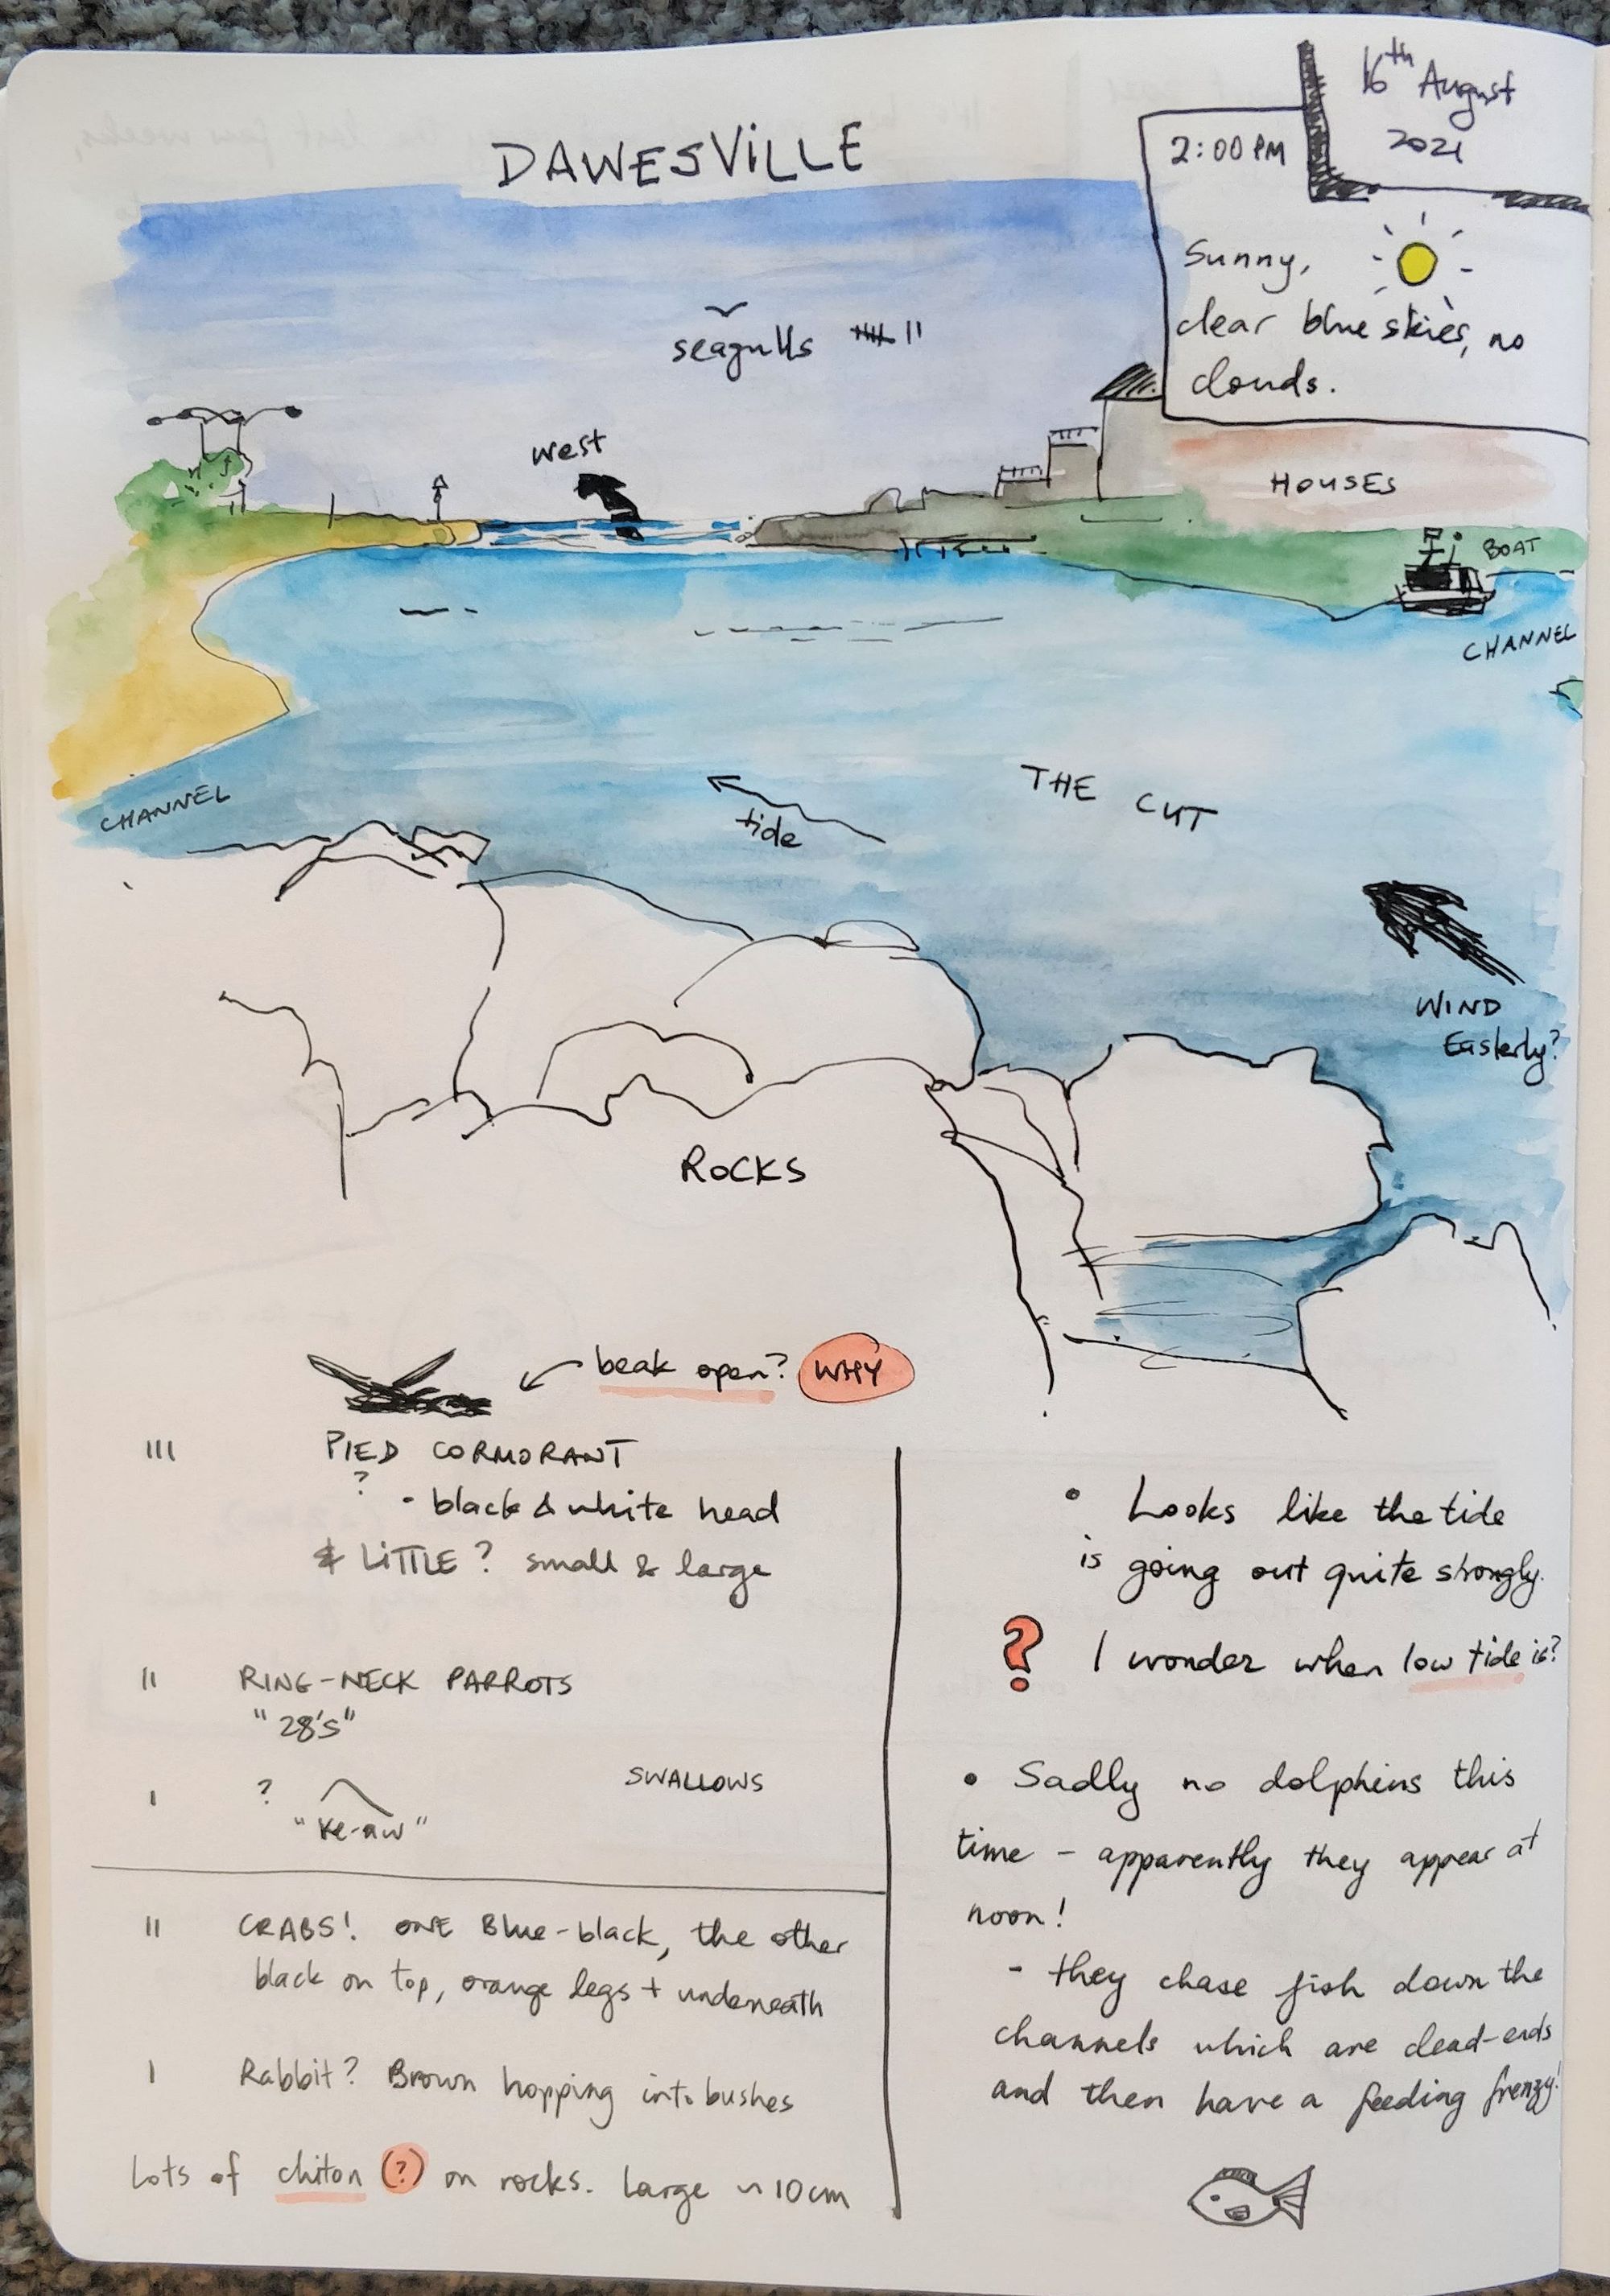 16th August
2021
2:00 PM
DAWESVILLE
Sunny,
clear blue skies, no
clouds.
seagulls
west
HOUSES
BOAT
CHANNEL
THE CUT
tide
CHANNEL
WIND
Easterly?
ROCKS
beak open? WHY
III PIED CORMORANT
?
- black & white head
& LITTLE? small & large
II RING-NECK PARROTS
"28's"
I ? SWALLOWS
"Ke-aw"
II CRABS! ONE Blue-black, the other
black on top, orange legs + underneath
I Rabbit? Brown hopping into bushes
Lots of chiton (?) on rocks. Large ~ 10cm
• Looks like the tide
is going out quite strongly.
? I wonder when low tide is?
• Sadly no dolphins this
time - apparently they appear at
noon!
- they chase fish down the
channels which are dead-ends
and then have a feeding frenzy!